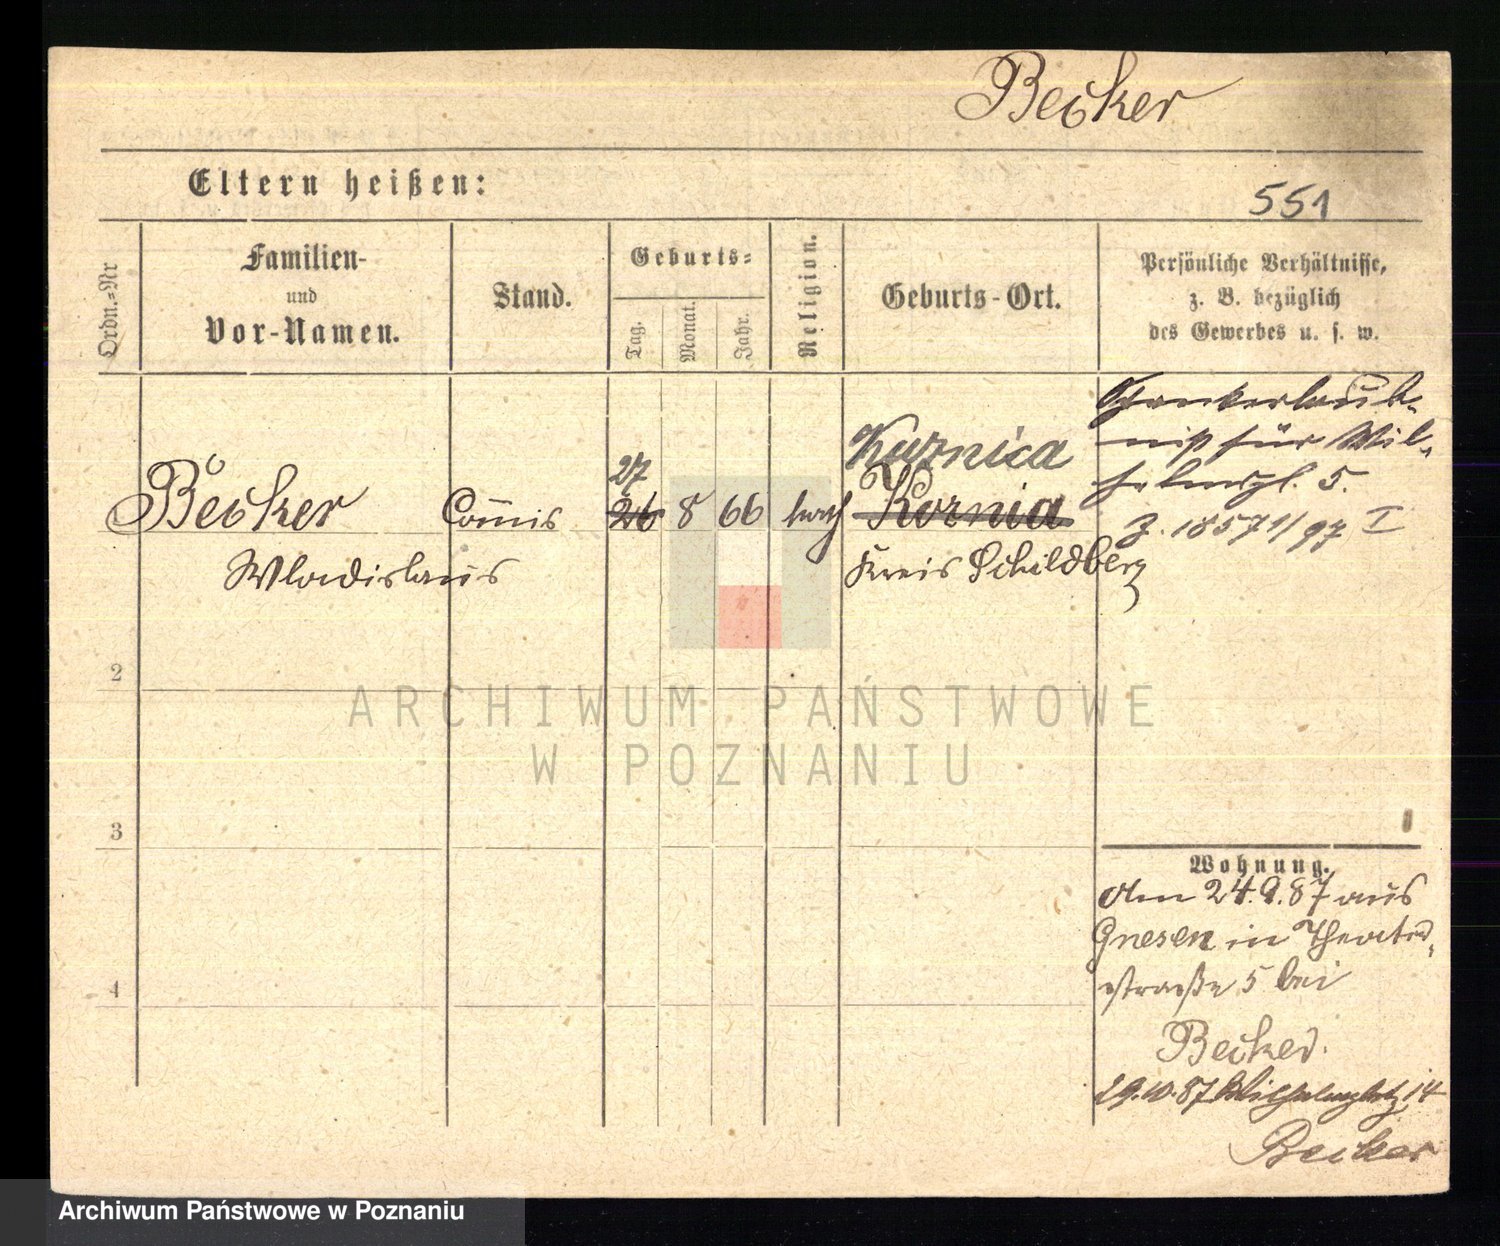 Becker
Eltern heißen:
551
Ordn.=Nr
Familien-
und
Vor-Namen.
Stand.
Geburts=
Tag.
Monat.
Jahr.
Religion.
Geburts-Ort.
Persönliche Verhältnisse,
z. B. bezüglich
des Gewerbes u. s. w.
Schankerlaub-
niß für Wil-
helmspl. 5.
J. 18571/97 I
Kuznica
27
Becker Com̅is 26 8 66 kath Kornia
Wladislaus
Kreis Schildberg
2
3
4
Wohnung.
Am 24.9.87 aus
Gnesen in Theater-
straße 5 bei
Becker.
29.10.87 Wilhelmplatz 14
Becker
ARCHIWUM PAŃSTWOWE
W POZNANIU
Archiwum Państwowe w Poznaniu